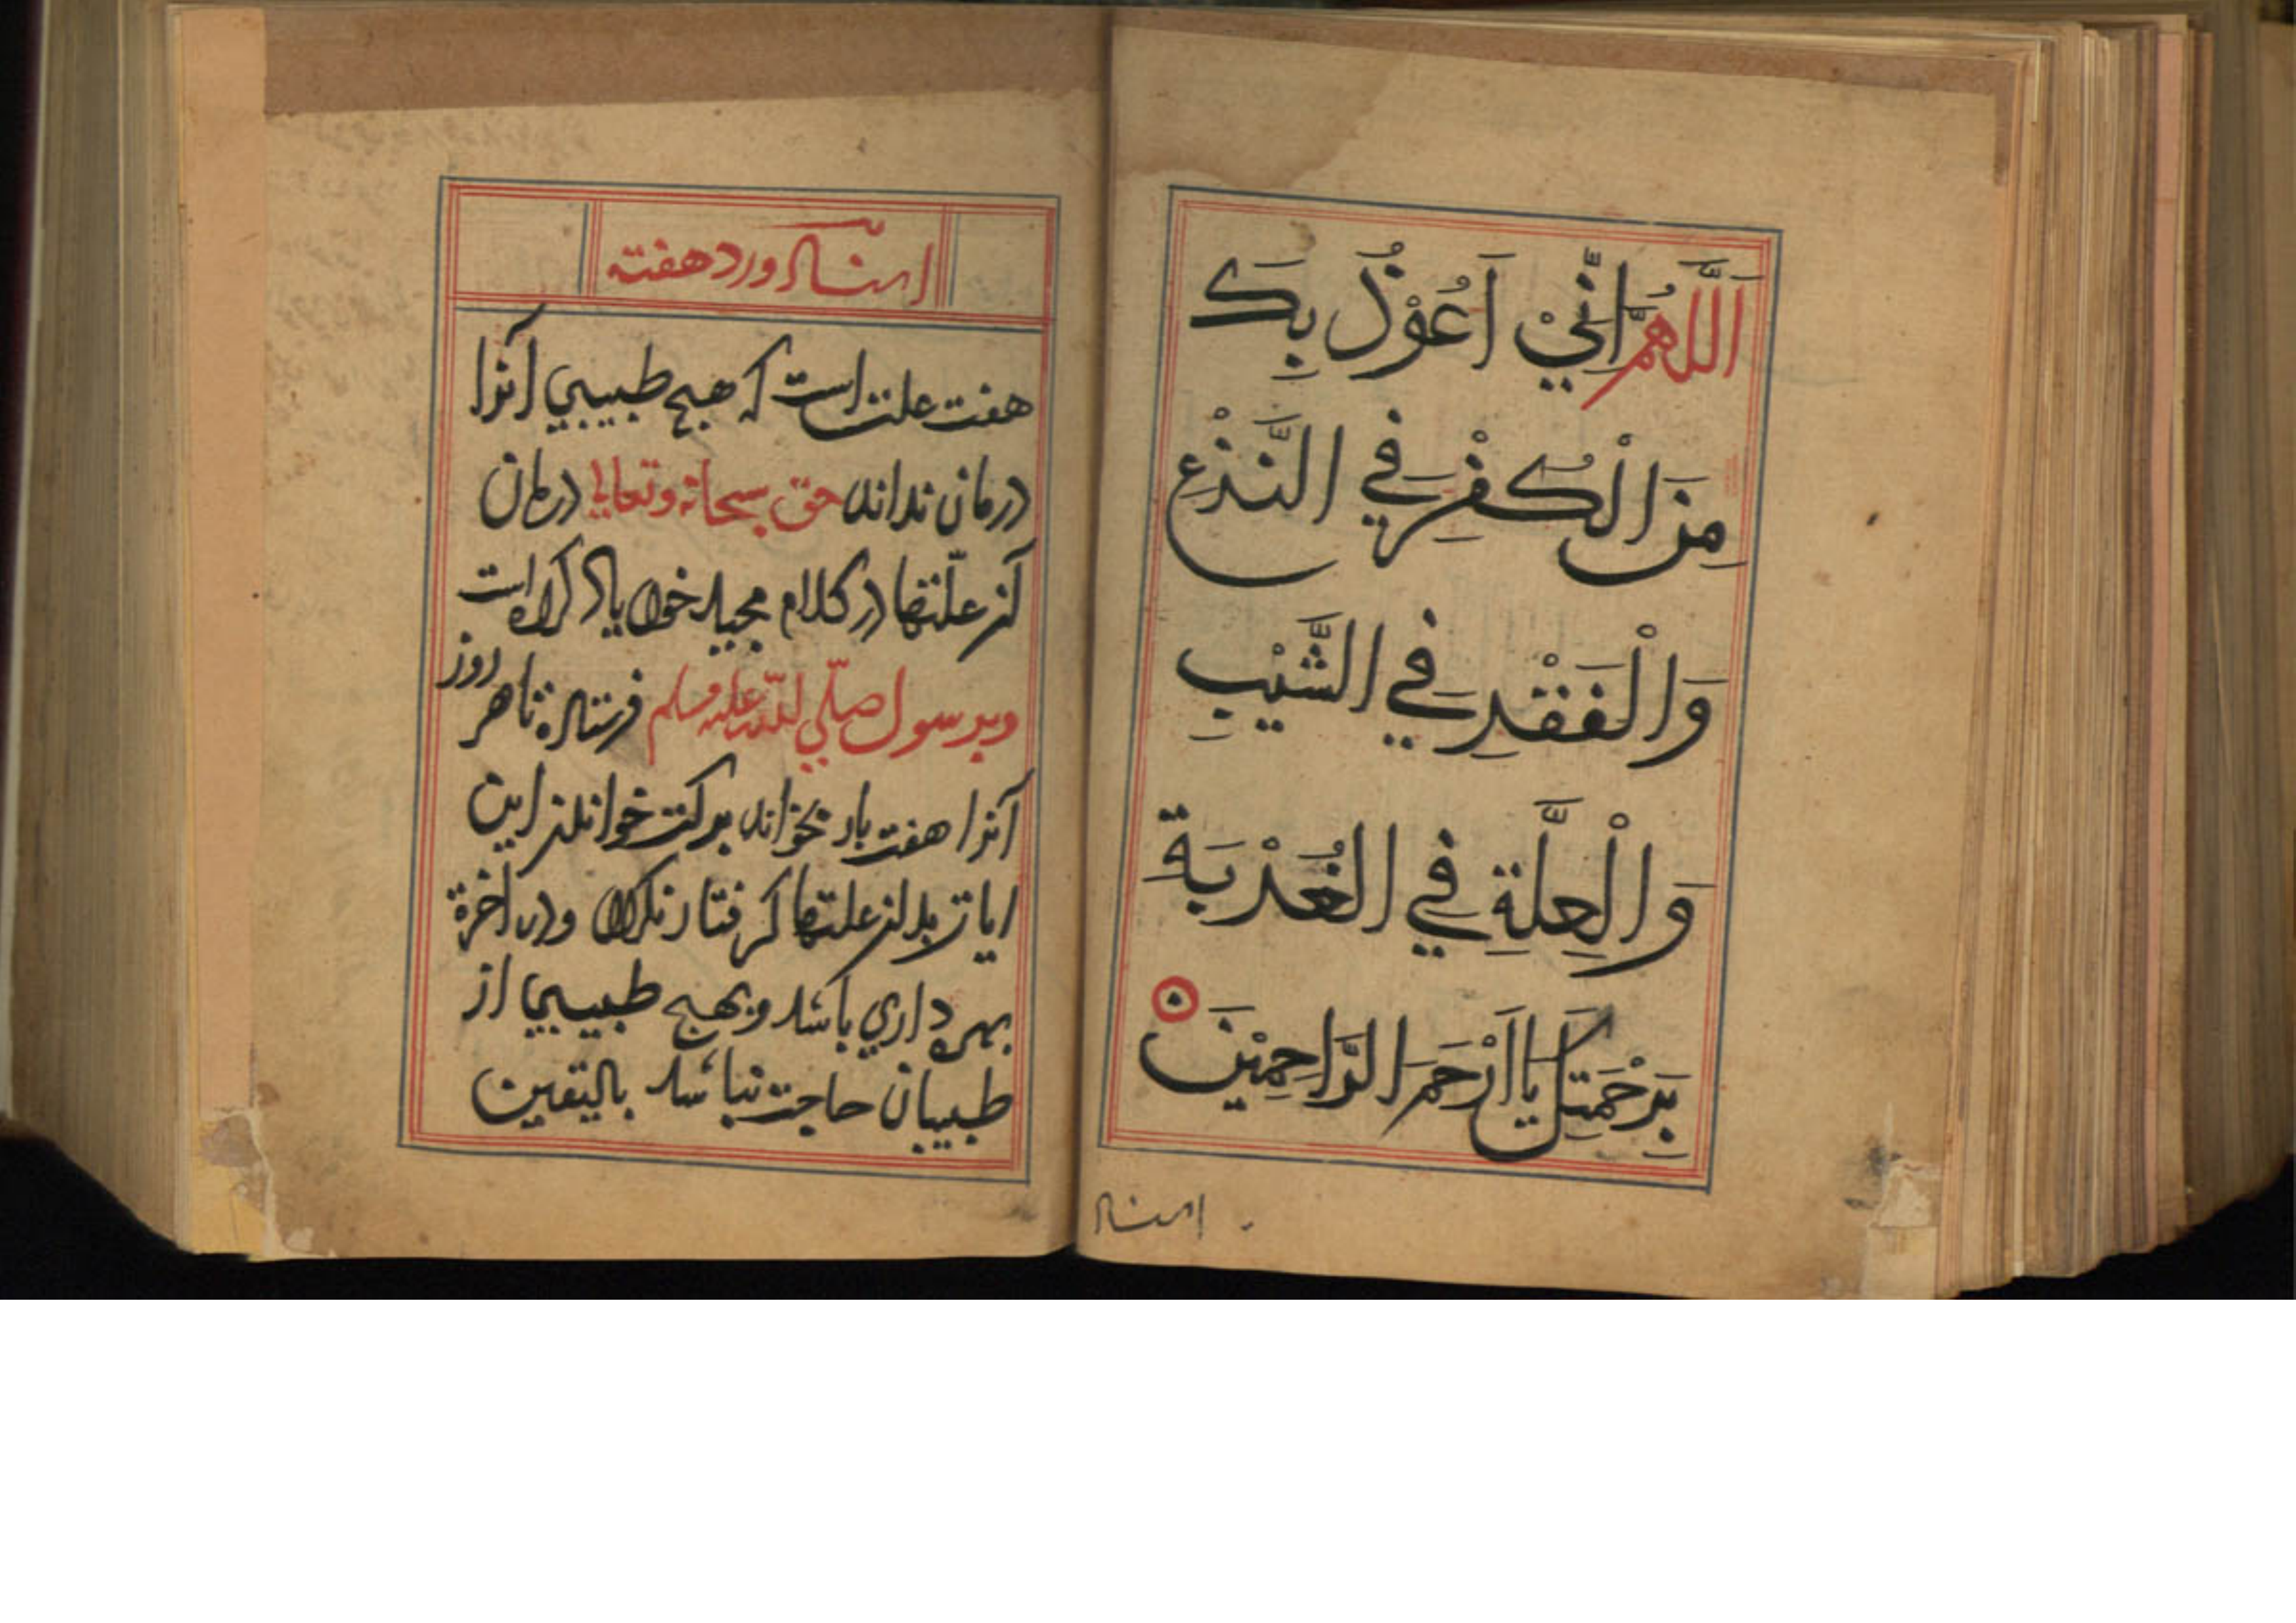 اَللّٰهُمَّ اِنِّيْ اَعُوْذُ بِكَ
مِنَ الْكُفْرِ فِي النَّزْعِ
وَالْفَقْرِ فِي الشَّيْبِ
وَالْعِلَّةِ فِي الْغُرْبَةِ
بِرَحْمَتِكَ يَا اَرْحَمَ الرَّاحِمِيْنَ
اسناد
اسناد ورد هفته
هفت علت است كه هيج طبيبي آنرا
درمان نداند حق سبحانه وتعالى درمان
آنر علّتها در كلام مجيد خود ياد كرده است
وبر رسول صلّي اللّه عليه وسلم فرستاده تا هر روز
آنرا هفت بار بخواند بركت خواندنر اين
ايات بدانر علتها كرفتار نكردد ودر آخرة
بهره داري باشد وبهيج طبيبي از
طبيبان حاجت نباشد باليقين